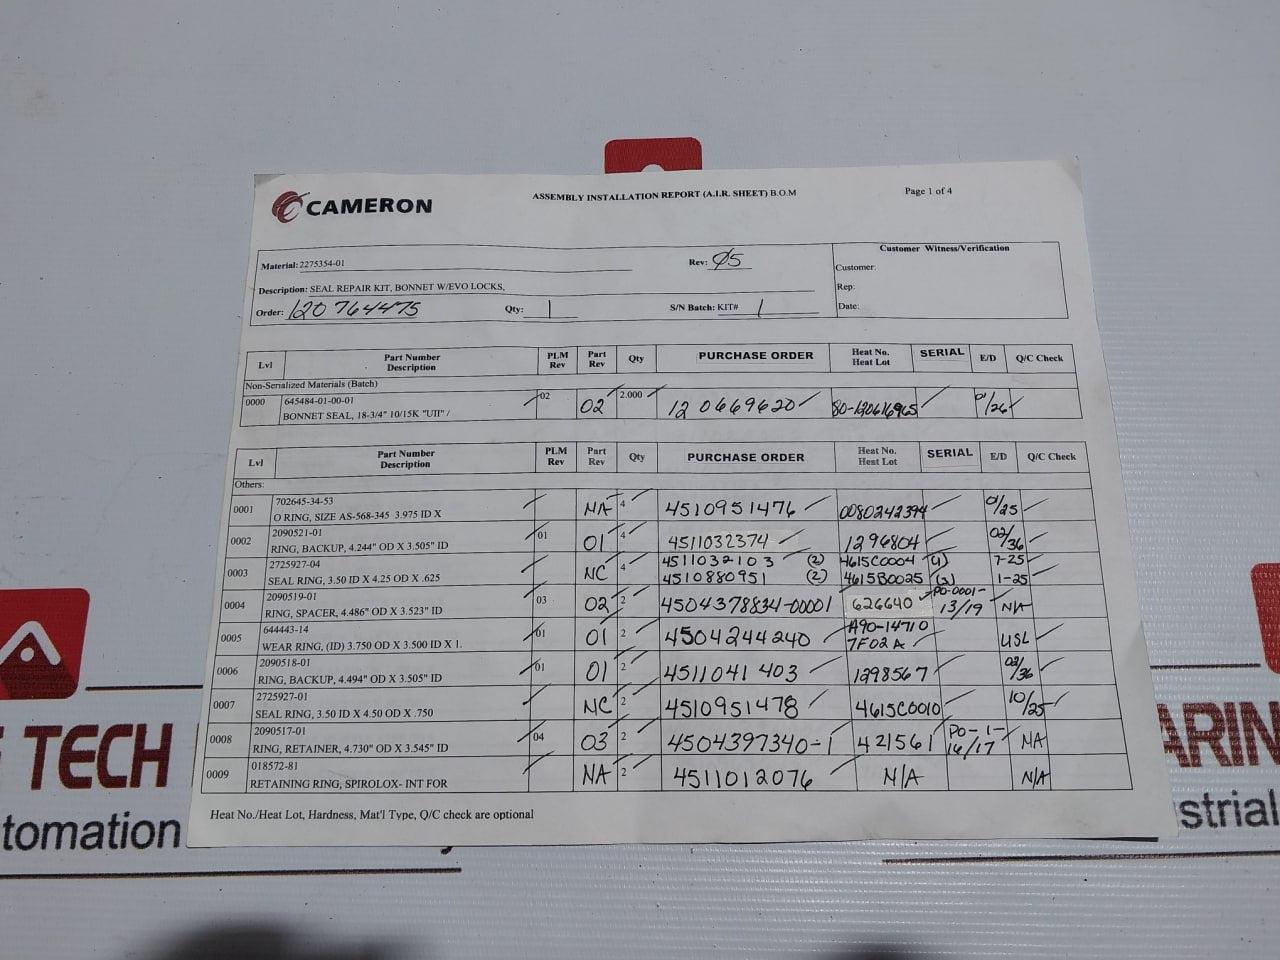 CAMERON
ASSEMBLY INSTALLATION REPORT (A.I.R. SHEET) B.O.M
Page 1 of 4
Material: 2275354-01
Rev: Ø5
Description: SEAL REPAIR KIT, BONNET W/EVO LOCKS,
Order: 120764475
Qty: 1
S/N Batch: KIT# 1
Customer Witness/Verification
Customer:
Rep:
Date:
Lvl Part Number Description PLM Rev Part Rev Qty PURCHASE ORDER Heat No. Heat Lot SERIAL E/D Q/C Check
Non-Serialized Materials (Batch)
0000 645484-01-00-01 02 02 2.000 120669620 80-120616965 01/26
BONNET SEAL, 18-3/4" 10/15K "UII" /
Lvl Part Number Description PLM Rev Part Rev Qty PURCHASE ORDER Heat No. Heat Lot SERIAL E/D Q/C Check
Others:
0001 702645-34-53 NA 4 4510951476 0080242394 01/25
O RING, SIZE AS-568-345 3.975 ID X
0002 2090521-01 01 01 4 4511032374 1296804 02/36
RING, BACKUP, 4.244" OD X 3.505" ID
0003 2725927-04 NC 4 4511032103 (2) 4615C0004 7-25
SEAL RING, 3.50 ID X 4.25 OD X .625 4510880951 (2) 4615B0025 1-25
0004 2090519-01 03 02 2 4504378834-00001 626640 PO-0001-13/19 N/A
RING, SPACER, 4.486" OD X 3.523" ID
0005 644443-14 01 01 2 4504244240 A90-14710 7F02A USL
WEAR RING, (ID) 3.750 OD X 3.500 ID X 1.
0006 2090518-01 01 01 2 4511041403 1298567 02/36
RING, BACKUP, 4.494" OD X 3.505" ID
0007 2725927-01 NC 2 4510951478 4615C0010 10/25
SEAL RING, 3.50 ID X 4.50 OD X .750
0008 2090517-01 04 03 2 4504397340-1 421561 PO-1-16/17 NA
RING, RETAINER, 4.730" OD X 3.545" ID
0009 018572-81 NA 2 4511012076 N/A N/A
RETAINING RING, SPIROLOX- INT FOR
Heat No./Heat Lot, Hardness, Mat'l Type, Q/C check are optional
TECH
tomation
ARIN
strial